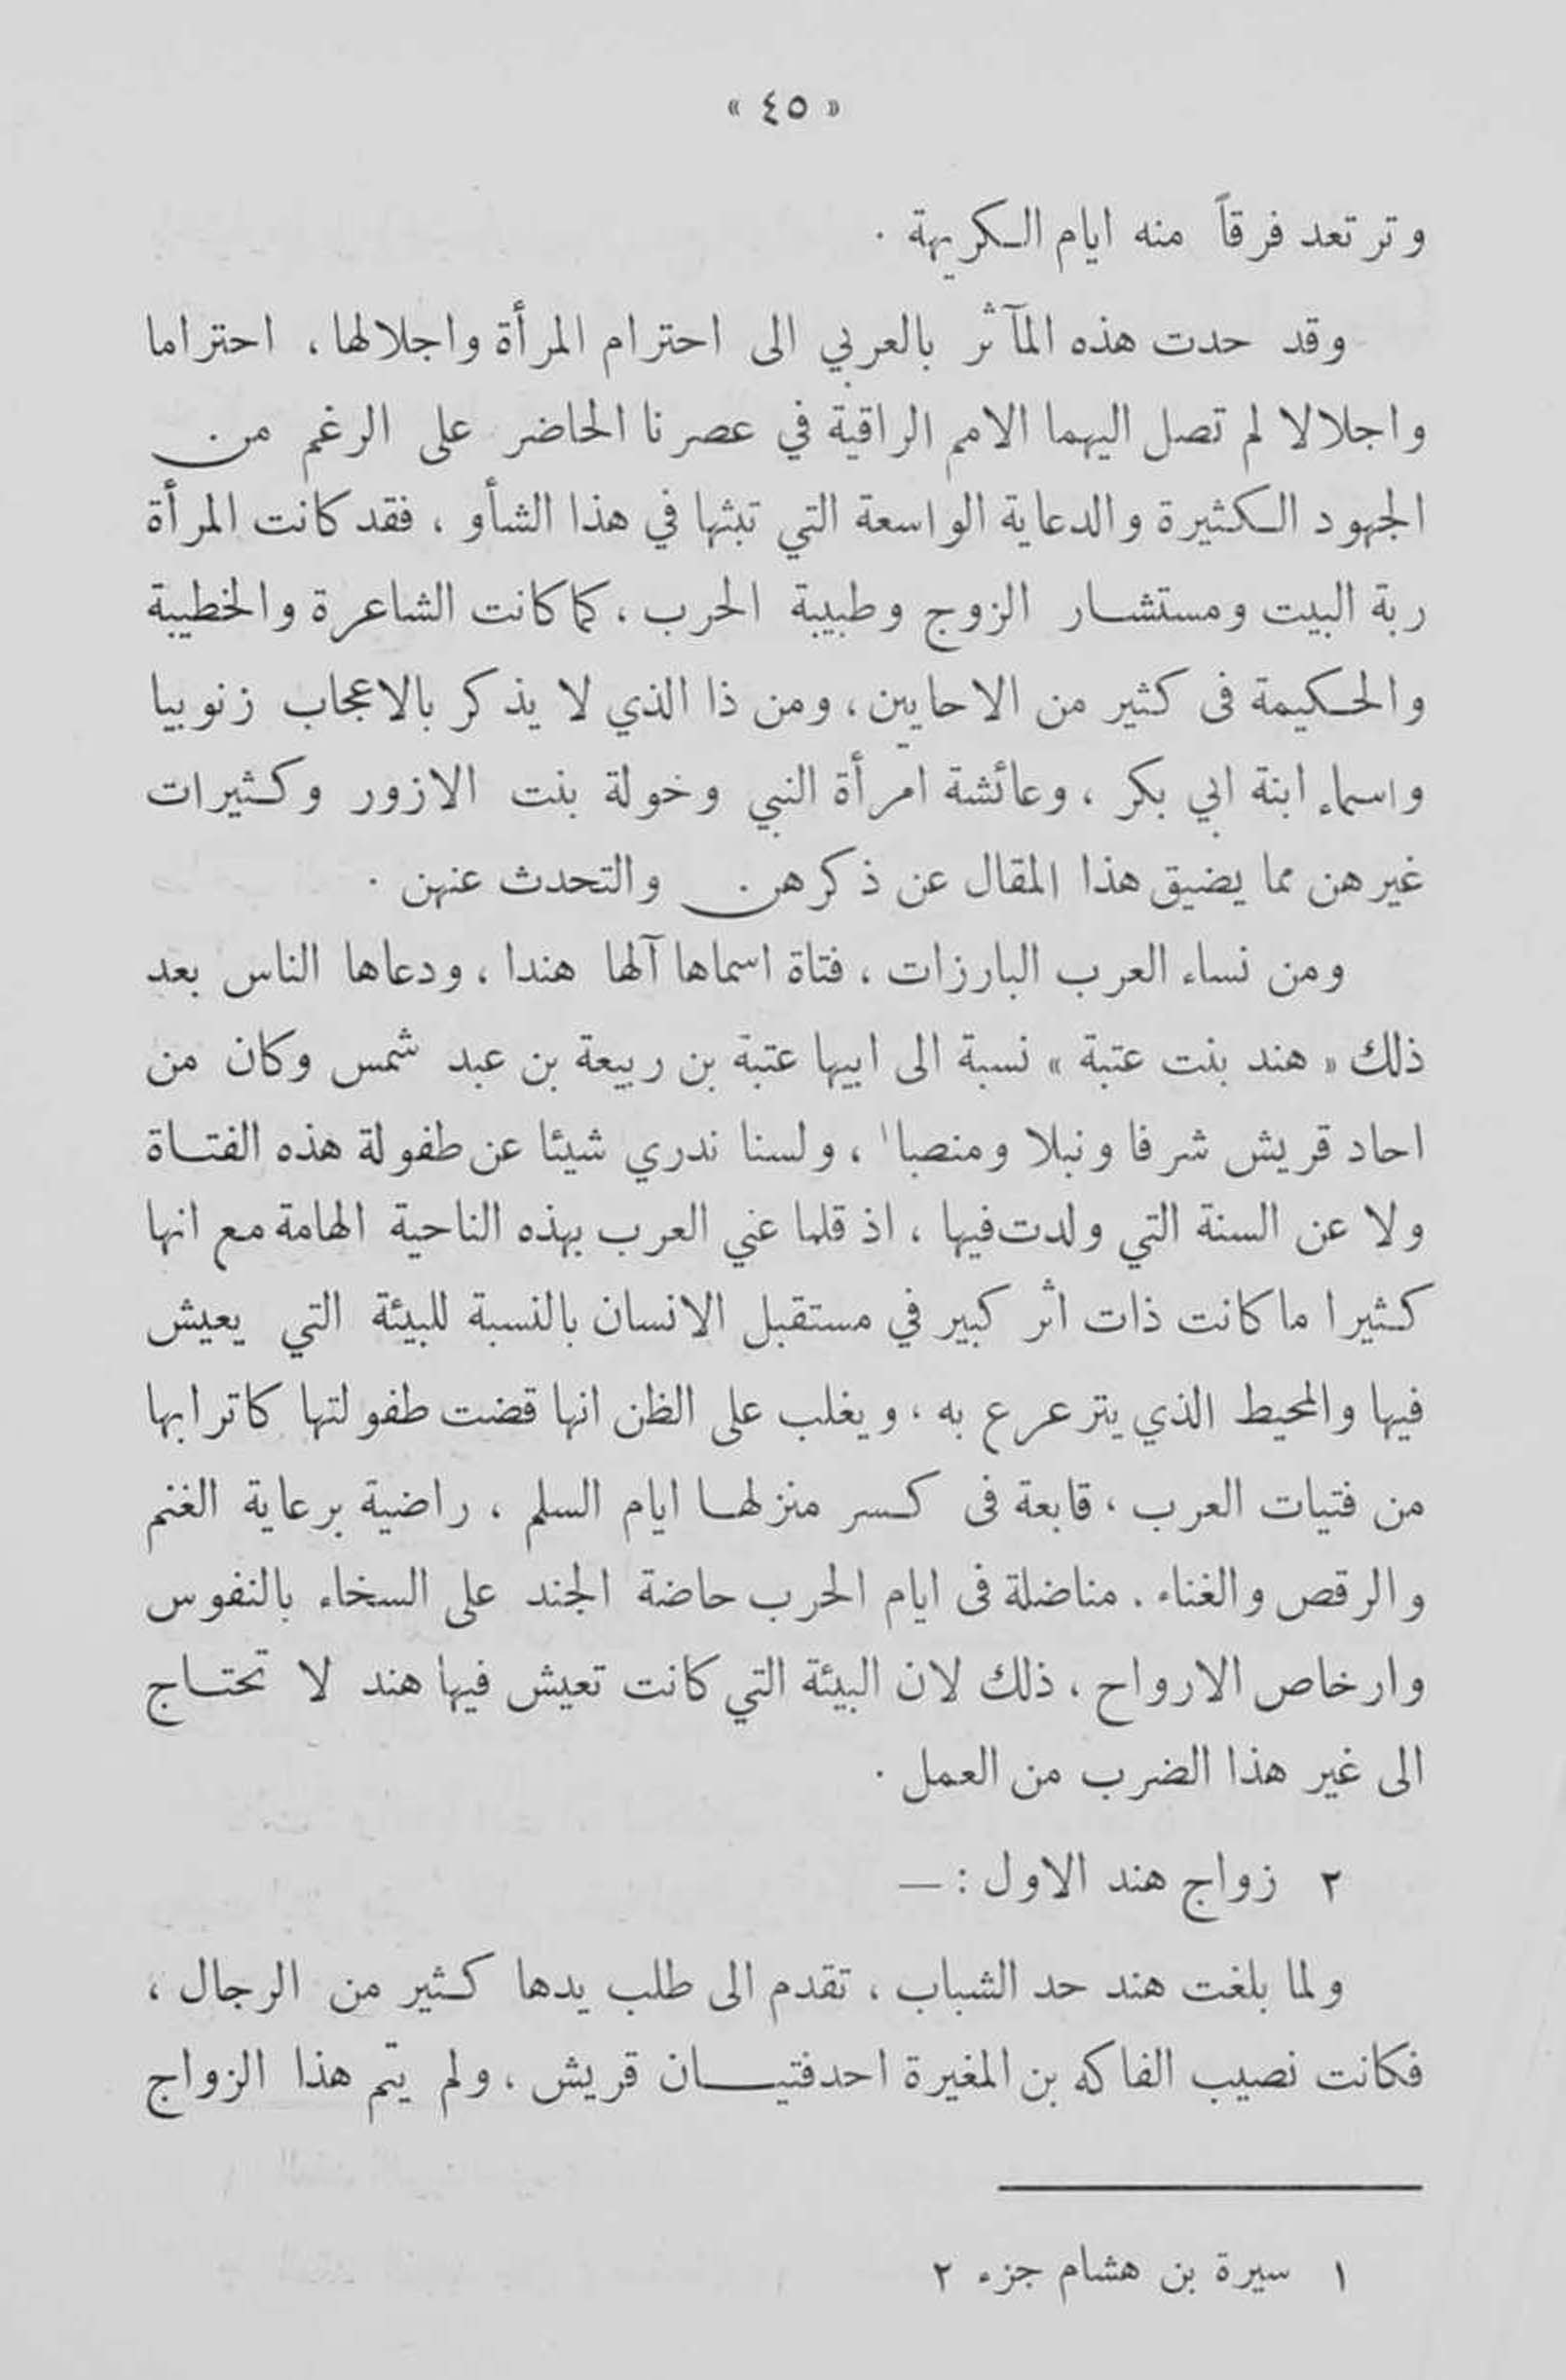 « ٤٥ »
وترتعد فرقاً منه ايام الكريهة .
وقد حدت هذه المآثر بالعربي الى احترام المرأة واجلالها ، احتراما
واجلالا لم تصل اليهما الامم الراقية في عصرنا الحاضر على الرغم من
الجهود الكثيرة والدعاية الواسعة التي تبثها في هذا الشأو ، فقد كانت المرأة
ربة البيت ومستشار الزوج وطبيبة الحرب ، كما كانت الشاعرة والخطيبة
والحكيمة فى كثير من الاحايين ، ومن ذا الذي لا يذكر بالاعجاب زنوبيا
واسماء ابنة ابي بكر ، وعائشة امرأة النبي وخولة بنت الازور وكثيرات
غيرهن مما يضيق هذا المقال عن ذكرهن والتحدث عنهن .
ومن نساء العرب البارزات ، فتاة اسماها آلها هندا ، ودعاها الناس بعد
ذلك « هند بنت عتبة » نسبة الى ابيها عتبة بن ربيعة بن عبد شمس وكان من
احاد قريش شرفا ونبلا ومنصبا١ ، ولسنا ندري شيئا عن طفولة هذه الفتاة
ولا عن السنة التي ولدت فيها ، اذ قلما عني العرب بهذه الناحية الهامة مع انها
كثيرا ما كانت ذات اثر كبير في مستقبل الانسان بالنسبة للبيئة التي يعيش
فيها والمحيط الذي يترعرع به ، ويغلب على الظن انها قضت طفولتها كاترابها
من فتيات العرب ، قابعة فى كسر منزلها ايام السلم ، راضية برعاية الغنم
والرقص والغناء . مناضلة فى ايام الحرب حاضة الجند على السخاء بالنفوس
وارخاص الارواح ، ذلك لان البيئة التي كانت تعيش فيها هند لا تحتاج
الى غير هذا الضرب من العمل .
٢ زواج هند الاول : —
ولما بلغت هند حد الشباب ، تقدم الى طلب يدها كثير من الرجال ،
فكانت نصيب الفاكه بن المغيرة احد فتيان قريش ، ولم يتم هذا الزواج
١ سيرة بن هشام جزء ٢